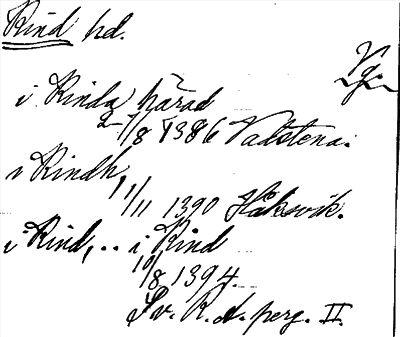 Kind hd.
Vg.
i Kinda härad
2-7/8 1386 Vadstena.
i Kindh,
11/11 1390 Håksvik.
i Kind, .. i Kind
10/8 1394.
Sv. R. A. perg. II.